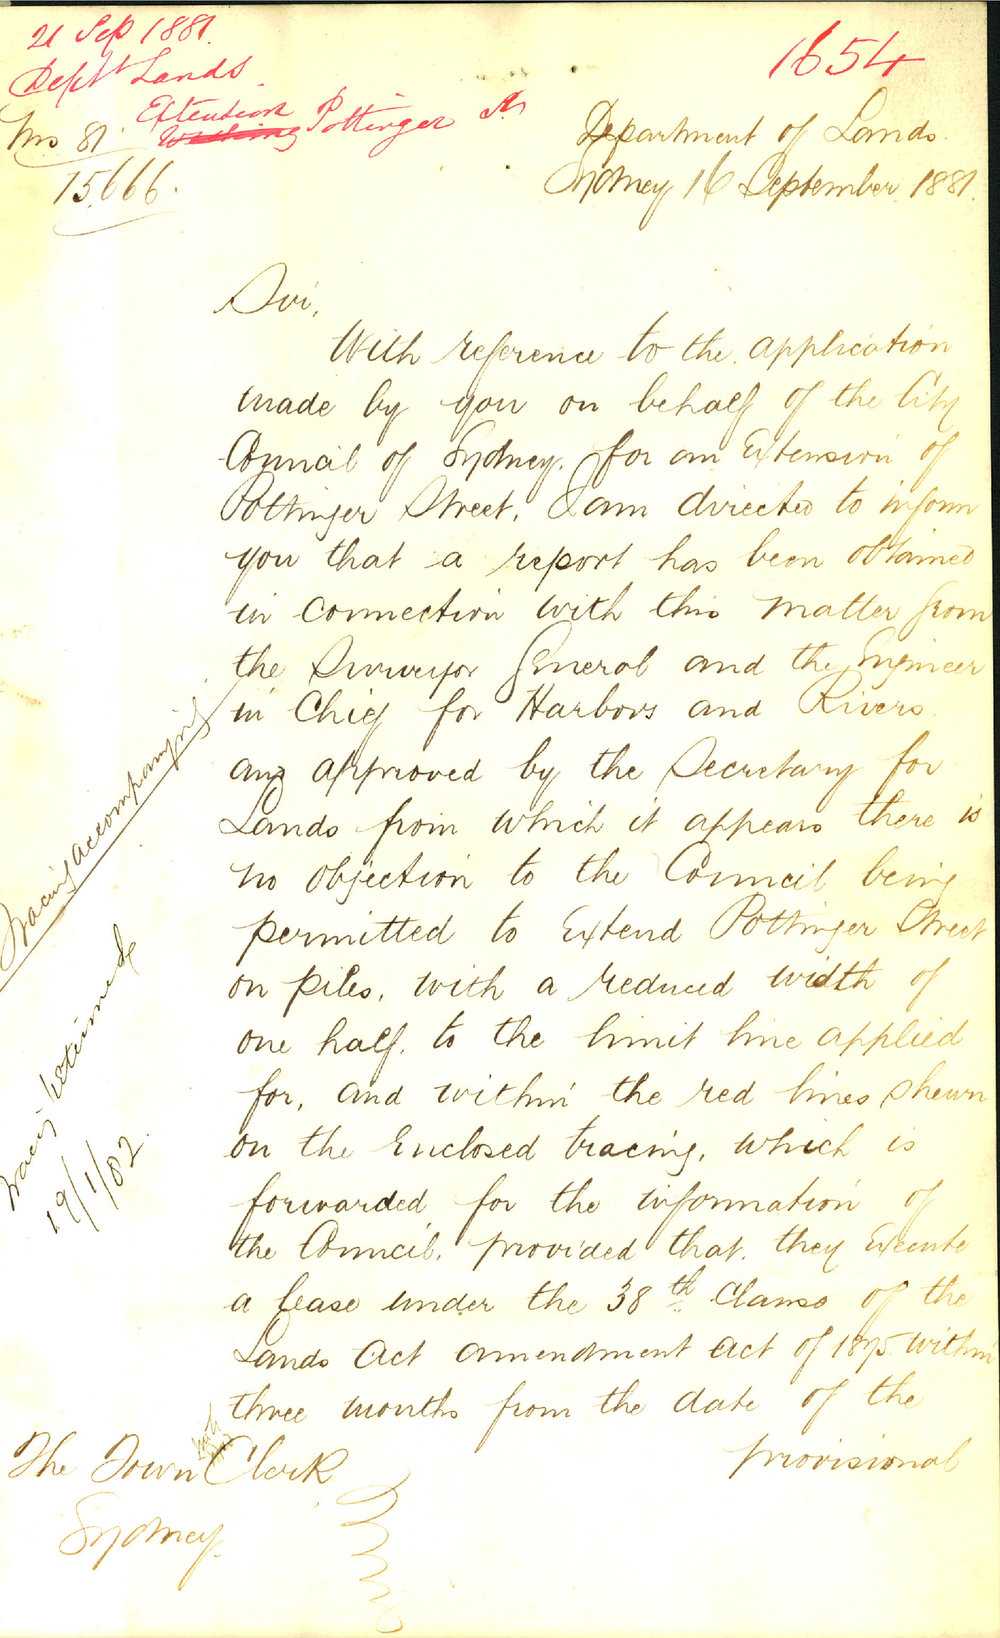 21 Sep 1881.
Dept Lands
Extension Pottinger St
1654
Mis 81
15.666.
Department of Lands.
Sydney 16 September 1881.
Sir,
With reference to the application
made by you on behalf of the City
Council of Sydney, for an Extension of
Pottinger Street, I am directed to inform
you that a report has been obtained
in connection with this matter from
the Surveyor General and the Engineer
in Chief for Harbors and Rivers
and approved by the Secretary for
Lands from which it appears there is
no objection to the Council being
permitted to Extend Pottinger Street
on piles, with a reduced width of
one half, to the limit line applied
for, and within the red lines shewn
on the Enclosed tracing, which is
forwarded for the information of
the Council, provided that, they Execute
a lease under the 38th Clause of the
Lands Act amendment Act of 1875 within
three months from the date of the
provisional
The Town Clerk
Sydney.
Tracing accompanying
Tracing returned
19/1/82.